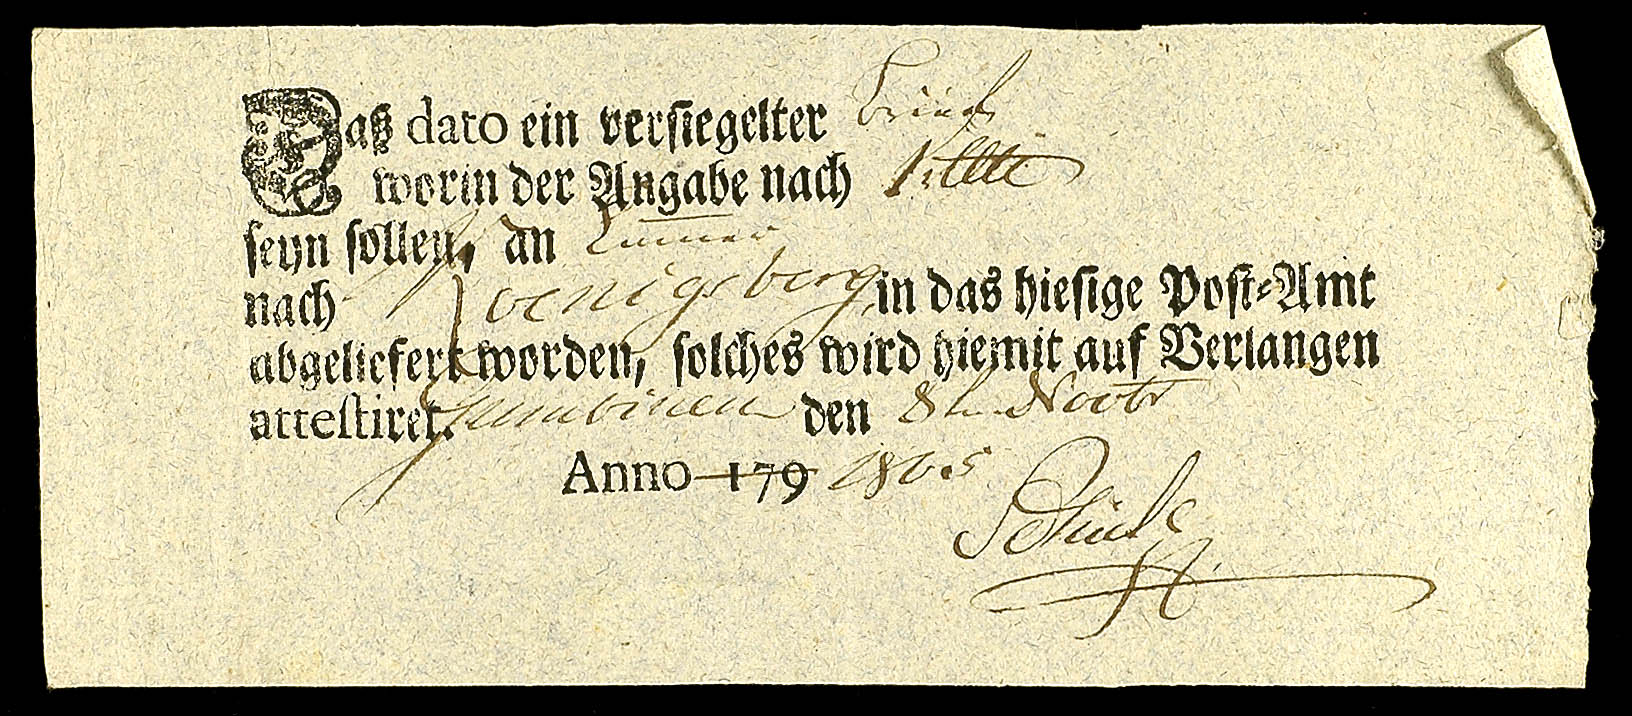 Daß dato ein versiegelter Brief
worin der Angabe nach
seyn sollen, an
nach Koenigsberg in das hiesige Post-Amt
abgeliefert worden, solches wird hiemit auf Verlangen
attestiret. Gumbinen den 8t Novbr
Anno 179 1805